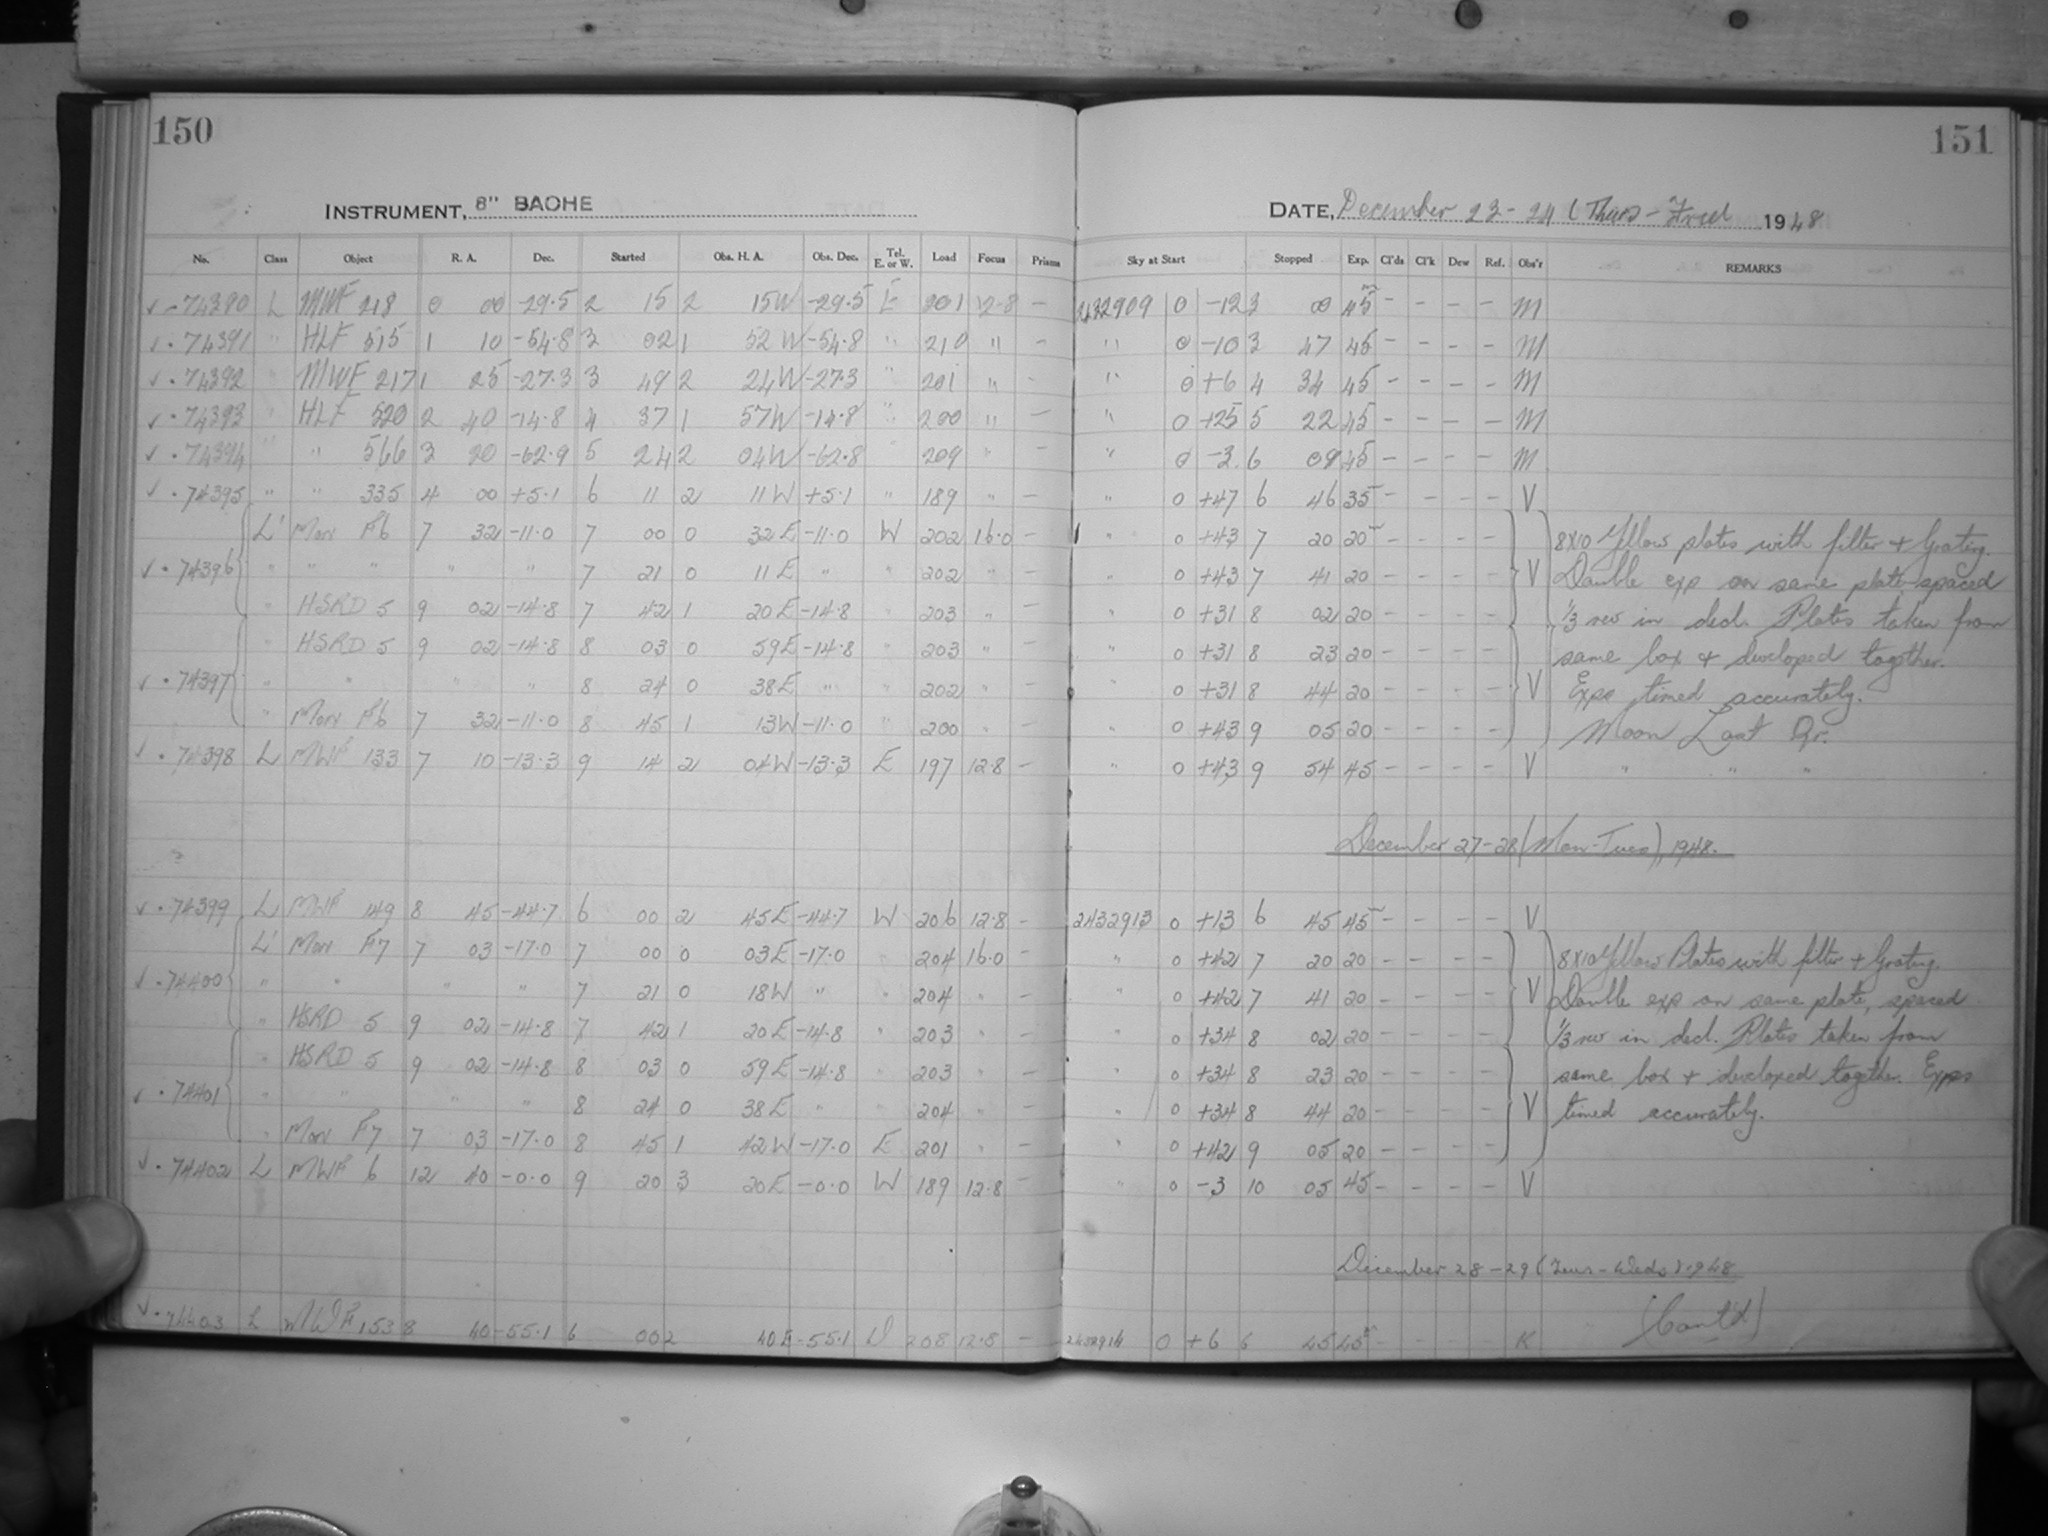 150
151
INSTRUMENT, 8" BAOHE
DATE, December 23-24 (Thurs - Fri) 1948
No. Class Object R. A. Dec. Started Obs. H. A. Obs. Dec. Tel. E. or W. Load Focus Prisms Sky at Start Stopped Exp. Cl'ds Cl'k Dew Ref. Obs'r REMARKS
✓ - 74390 L MWF 218 0 00 -29.5 2 15 2 15W -29.5 E 201 12.8 - 2432909 0 -12 3 00 45 - - - - M
✓ . 74391 " HLF 515 1 10 -54.8 3 02 1 52W -54.8 " 210 " - " 0 -10 3 47 45 - - - - M
✓ . 74392 " MWF 217 1 25 -27.3 3 49 2 24W -27.3 " 201 " - " 0 +6 4 34 45 - - - - M
✓ . 74393 " HLF 520 2 40 -14.8 4 37 1 57W -14.8 " 200 " - " 0 +25 5 22 45 - - - - M
✓ . 74394 " " 566 3 20 -62.9 5 24 2 04W -62.8 209 " - " 0 -3 6 09 45 - - - - M
✓ . 74395 " " 335 4 00 +5.1 6 11 2 11W +5.1 " 189 " - " 0 +47 6 46 35 - - - - V
L' Mon F6 7 32 -11.0 7 00 0 32E -11.0 W 202 16.0 - " 0 +43 7 20 20 - - - - 8x10 Yellow plates with filter + Grating.
✓ . 74396 " " " " " 7 21 0 11E " " 202 " - " 0 +43 7 41 20 - - - - V Double exp on same plate spaced
" HSRD 5 9 02 -14.8 7 42 1 20E -14.8 " 203 " - " 0 +31 8 02 20 - - - - 1/3 rev in decl. Plates taken from
" HSRD 5 9 02 -14.8 8 03 0 59E -14.8 " 203 " - " 0 +31 8 23 20 - - - - same box & developed together.
✓ . 74397 " " " " 8 24 0 38E " " 202 " - " 0 +31 8 44 20 - - - - V Exps timed accurately.
" Mon F6 7 32 -11.0 8 45 1 13W -11.0 " 200 " - " 0 +43 9 05 20 - - - - Moon Last Qr.
✓ . 74398 L MWF 133 7 10 -13.3 9 14 2 04W -13.3 E 197 12.8 - " 0 +43 9 54 45 - - - - V " " "
December 27-28 (Mon-Tues), 1948.
✓ . 74399 L MWF 149 8 45 -44.7 6 00 2 45E -44.7 W 206 12.8 - 2432913 0 +13 6 45 45 - - - - V
L' Mon F7 7 03 -17.0 7 00 0 03E -17.0 " 204 16.0 - " 0 +42 7 20 20 - - - - 8x10 Yellow Plates with filter + Grating.
✓ . 74400 " " " " 7 21 0 18W " " 204 " - " 0 +42 7 41 20 - - - - V Double exp on same plate, spaced
" HSRD 5 9 02 -14.8 7 42 1 20E -14.8 " 203 " - " 0 +34 8 02 20 - - - - 1/3 rev in decl. Plates taken from
" HSRD 5 9 02 -14.8 8 03 0 59E -14.8 " 203 " - " 0 +34 8 23 20 - - - - same box + developed together. Exps
✓ . 74401 " " " " 8 24 0 38E " " 204 " - " 0 +34 8 44 20 - - - - V timed accurately.
" Mon F7 7 03 -17.0 8 45 1 42W -17.0 E 201 " - " 0 +42 9 05 20 - - - -
✓ . 74402 L MWF 6 12 40 -0.0 9 20 3 20E -0.0 W 189 12.8 - " 0 -3 10 05 45 - - - - V
December 28-29 (Tues-Weds) 1948
✓ . 74403 L MWF 153 8 40 -55.1 6 00 2 40E -55.1 W 208 12.8 - 2432914 0 +6 6 45 45 - - - - K (Cont'd)